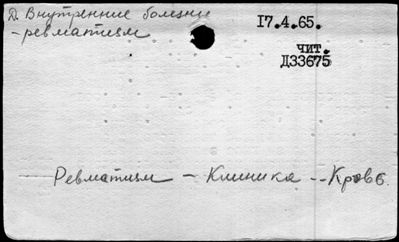 Д. Внутренние болезни
- ревматизм
17.4.65.
чит.
Д33675
Ревматизм - Клиника -- Кровь.